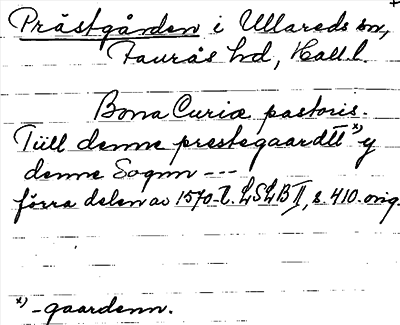 +
Prästgården i Ullareds sn,
Faurås hd, Hall l.
Bona Curiæ pastoris.
Tiill denne prestegaardtt x) y
denne Sognn ---
förra delen av 1570-t. LSLB II, s. 410. orig.
x) -gaardenn.